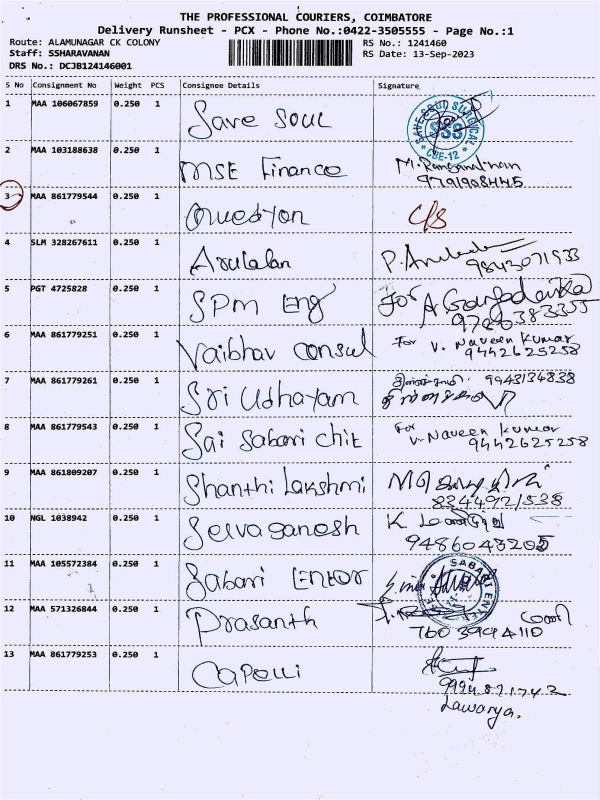 THE PROFESSIONAL COURIERS, COIMBATORE
Delivery Runsheet - PCX - Phone No.:0422-3505555 - Page No.:1
Route: ALAMUNAGAR CK COLONY RS No.: 1241460
Staff: SSHARAVANAN RS Date: 13-Sep-2023
DRS No.: DCJB124146001
S No Consignment No Weight PCS Consignee Details Signature
1 MAA 106067859 0.250 1 Save Soul SAVE SOUL SURGICAL SSS CBE-12
2 MAA 103188638 0.250 1 MSE Finance M. Ranganathan
9791908445
3 MAA 861779544 0.250 1 C/S
4 SLM 328267611 0.250 1 Arulalan P.
9843071933
5 PGT 4725828 0.250 1 SPM Eng for A.
9786383355
6 MAA 861779251 0.250 1 Vaibhav Consul For V. Naveen Kumar
9442625258
7 MAA 861779261 0.250 1 Sri Udhayam 9943134838
8 MAA 861779543 0.250 1 Sai Sabari Chit For V. Naveen Kumar
9442625258
9 MAA 861809207 0.250 1 Shanthi Lakshmi
8244921538
10 NGL 1038942 0.250 1 Selvaganesh K
9486043205
11 MAA 105572384 0.250 1 Sabari Enter SABARI
12 MAA 571326844 0.250 1 Prasanth மணி
760 3944110
13 MAA 861779253 0.250 1
9994871742
Lawarya.